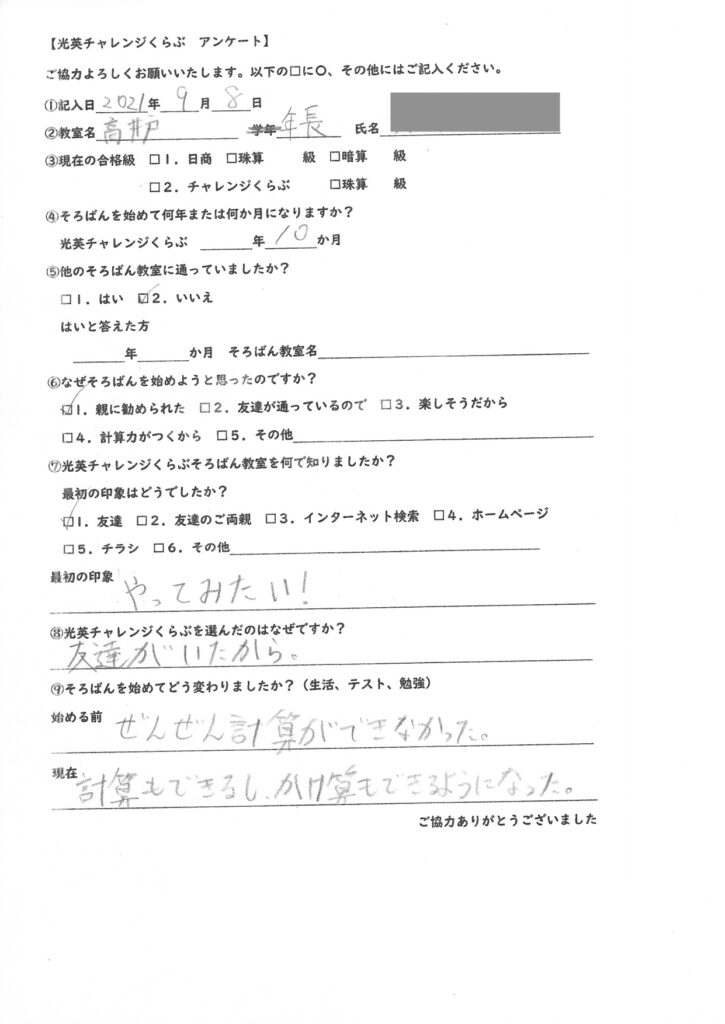 【光英チャレンジくらぶ　アンケート】
ご協力よろしくお願いいたします。以下の□に〇、その他にはご記入ください。
①記入日 2021年 9月 8日
②教室名 高井戸 学年 年長 氏名
③現在の合格級 □1．日商 □珠算 級 □暗算 級
□2．チャレンジくらぶ □珠算 級
④そろばんを始めて何年または何か月になりますか？
光英チャレンジくらぶ ＿＿＿年 10か月
⑤他のそろばん教室に通っていましたか？
□1．はい ☑2．いいえ
はいと答えた方
＿＿＿年＿＿＿か月 そろばん教室名＿＿＿
⑥なぜそろばんを始めようと思ったのですか？
☑1．親に勧められた □2．友達が通っているので □3．楽しそうだから
□4．計算力がつくから □5．その他＿＿＿
⑦光英チャレンジくらぶそろばん教室を何で知りましたか？
最初の印象はどうでしたか？
☑1．友達 □2．友達のご両親 □3．インターネット検索 □4．ホームページ
□5．チラシ □6．その他＿＿＿
最初の印象 やってみたい！
⑧光英チャレンジくらぶを選んだのはなぜですか？
友達がいたから。
⑨そろばんを始めてどう変わりましたか？（生活、テスト、勉強）
始める前 ぜんぜん計算ができなかった。
現在 計算もできるし、かけ算もできるようになった。
ご協力ありがとうございました